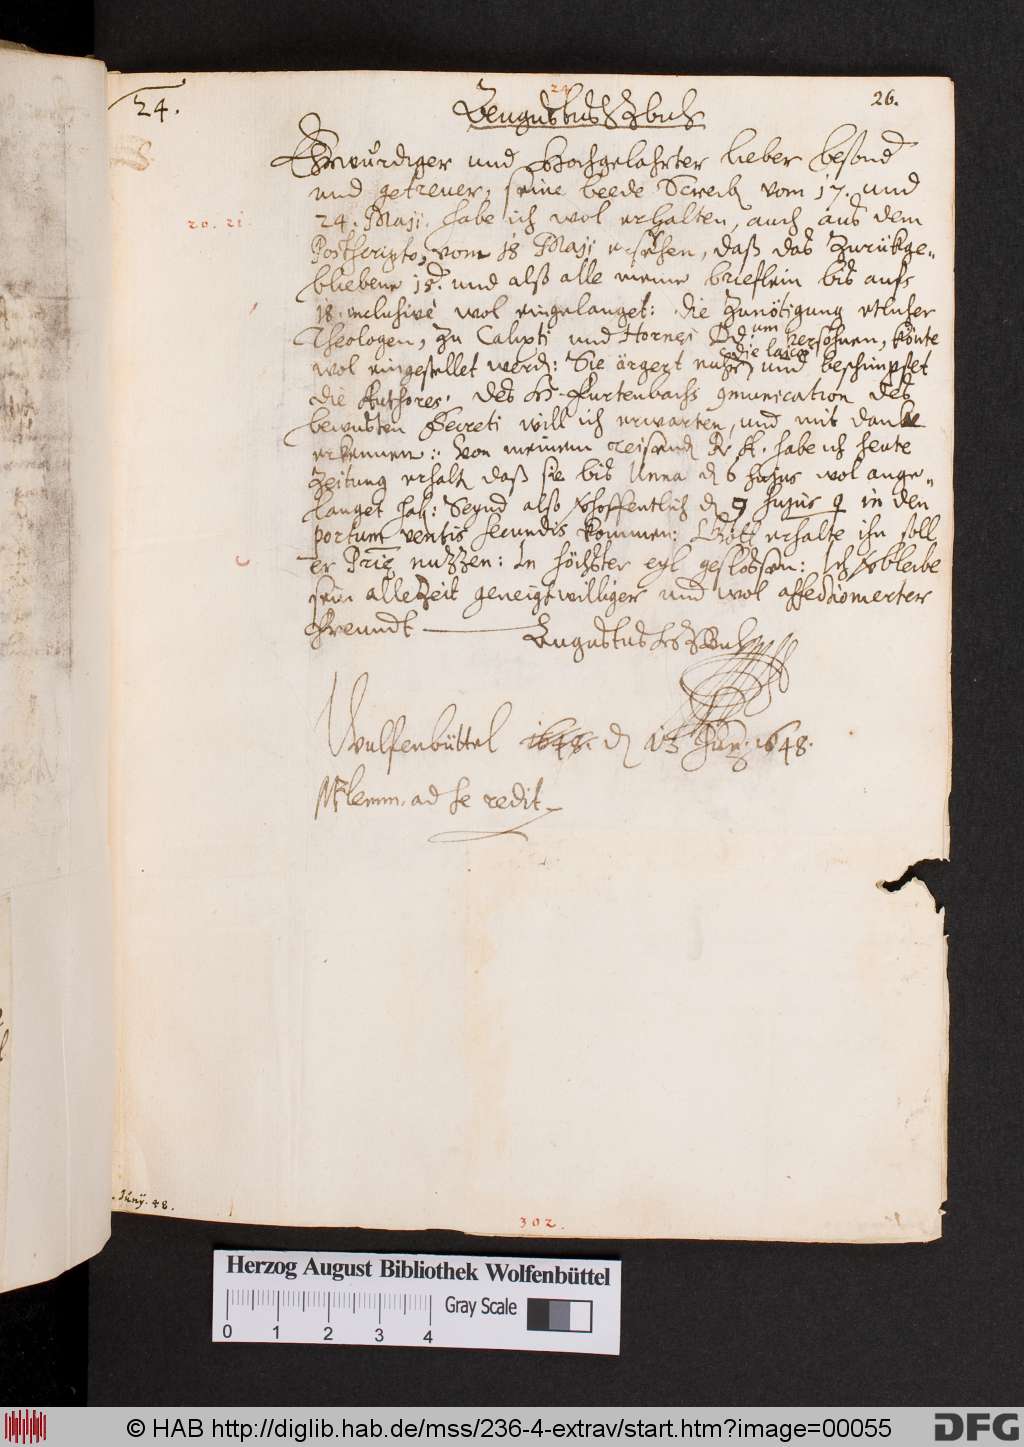 24.
24
26.
Augustus H Z B u L
Ehrwürdiger und Hochgelahrter lieber besond
und getreuer, seine beede Schreib vom 17. und
20. 21. 24. Maji. habe ich wol erhalten, auch aus dem
Postscripto, vom 18 Maji ersehen, daß das Zurükge„
bliebene 15. und alß alle meine brieflein bis aufs
18. inclusivè wol eingelanget: die Zunötigung etlicher
Theologen, zu Calixti und Hornei um persohnen, könte
wol eingestellet werd: Sie ärgert die laicos und beschimpffet
die Authores. des H. Furtenbachs communication des
bewusten Secreti will ich erwarten, und mit dank
erkennen: Von meinem Reisend habe ich heute
Zeitung erhalt daß sie bis Unna d 6 hujus wol ange„
langet hab: Seynd also verhoffentlich d 9 hujus ♀ in den
portum ventis secundis kommen: Gott erhalte ihn soll
er nuzzen: In höchster eyl geschlossen: Ich verbleibe
sein alleZeit geneigtwilliger und wol affectionierter
Freundt Augustus H Z B u L
Wulfenbüttel 1648. d 13 Jun: 1648.
Klemm. ad se redit
Junÿ. 48.
302.
Herzog August Bibliothek Wolfenbüttel
Gray Scale
0 1 2 3 4
© HAB http://diglib.hab.de/mss/236-4-extrav/start.htm?image=00055
DFG